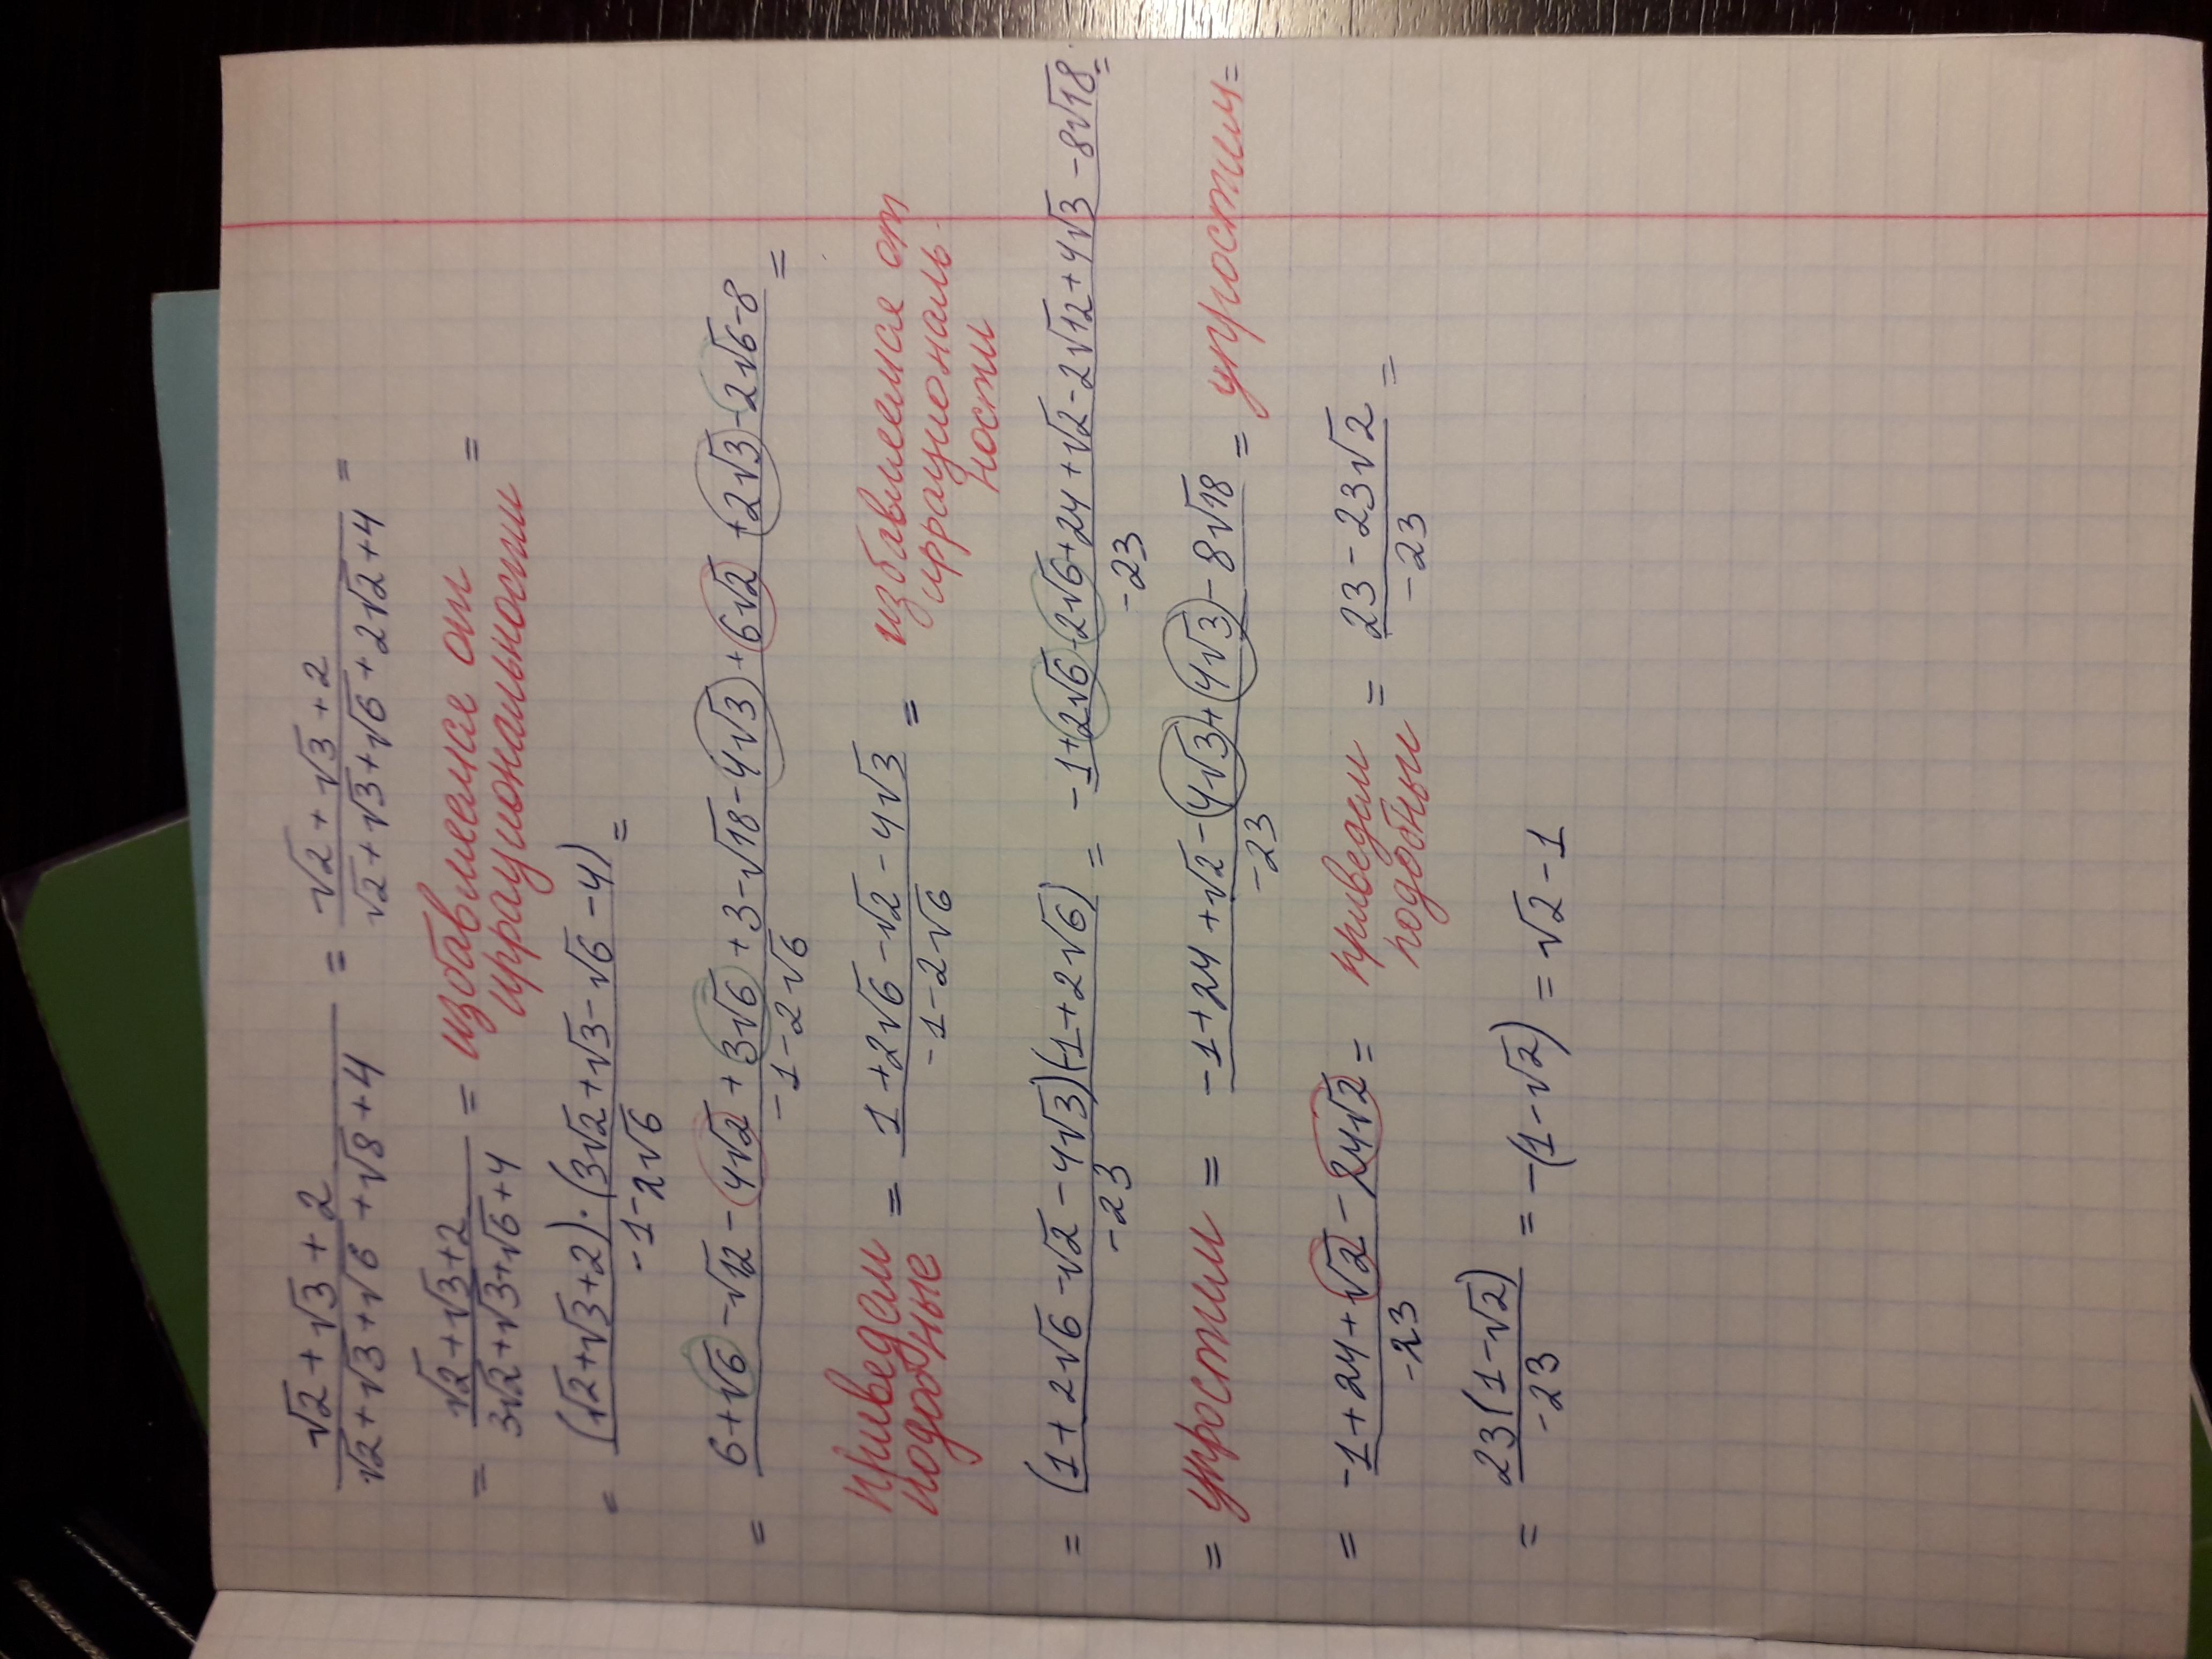 (√2 + √3 + 2)/(√2 + √3 + √6 + √8 + 4) = (√2 + √3 + 2)/(√2 + √3 + √6 + 2√2 + 4) =
= (√2 + √3 + 2)/(3√2 + √3 + √6 + 4) = избавляемся от иррациональности =
= ((√2 + √3 + 2)·(3√2 + √3 - √6 - 4))/(-1 - 2√6) =
= (6 + √6 - √12 - 4√2 + 3√6 + 3 - √18 - 4√3 + 6√2 + 2√3 - 2√6 - 8)/(-1 - 2√6) =
приведем подобные = (1 + 2√6 - √2 - 4√3)/(-1 - 2√6) = избавляемся от иррациональности
= ((1 + 2√6 - √2 - 4√3)(-1 + 2√6))/(-23) = (-1 + 2√6 - 2√6 + 24 + √2 - 2√12 + 4√3 - 8√18)/(-23) =
= упростим = (-1 + 24 + √2 - 4√3 + 4√3 - 8√18)/(-23) = упростим =
= (-1 + 24 + √2 - 24√2)/(-23) = приведем подобные = (23 - 23√2)/(-23) =
= (23(1 - √2))/(-23) = -(1 - √2) = √2 - 1